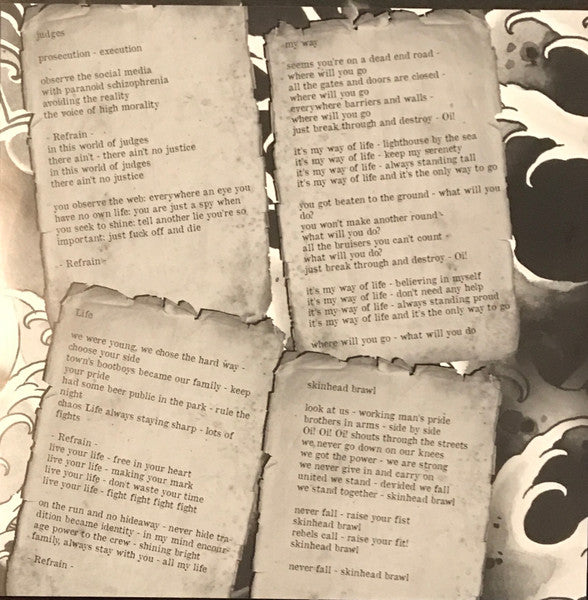 judges
prosecution - execution
observe the social media
with paranoid schizophrenia
avoiding the reality
the voice of high morality
- Refrain -
in this world of judges
there ain't - there ain't no justice
in this world of judges
there ain't no justice
you observe the web: everywhere an eye you
have no own life: you are just a spy when
you seek to shine: tell another lie you're so
important: just fuck off and die
- Refrain -
my way
seems you're on a dead end road -
where will you go
all the gates and doors are closed -
where will you go
everywhere barriers and walls -
where will you go
just break through and destroy - Oi!
it's my way of life - lighthouse by the sea
it's my way of life - keep my serenety
it's my way of life - always standing tall
it's my way of life and it's the only way to go
you got beaten to the ground - what will you
do?
you won't make another round -
what will you do?
all the bruisers you can't count -
what will you do?
just break through and destroy - Oi!
it's my way of life - believing in myself
it's my way of life - don't need any help
it's my way of life - always standing proud
it's my way of life and it's the only way to go
where will you go - what will you do
Life
we were young, we chose the hard way -
choose your side
town's bootboys became our family - keep
your pride
had some beer public in the park - rule the
night
chaos Life always staying sharp - lots of
fights
- Refrain -
live your life - free in your heart
live your life - making your mark
live your life - don't waste your time
live your life - fight fight fight fight
on the run and no hideaway - never hide tra-
dition became identity - in my mind encour-
age power to the crew - shining bright
family, always stay with you - all my life
- Refrain -
skinhead brawl
look at us - working man's pride
brothers in arms - side by side
Oi! Oi! Oi! shouts through the streets
we never go down on our knees
we got the power - we are strong
we never give in and carry on
united we stand - devided we fall
we stand together - skinhead brawl
never fall - raise your fist
skinhead brawl
rebels call - raise your fit!
skinhead brawl
never fall - skinhead brawl